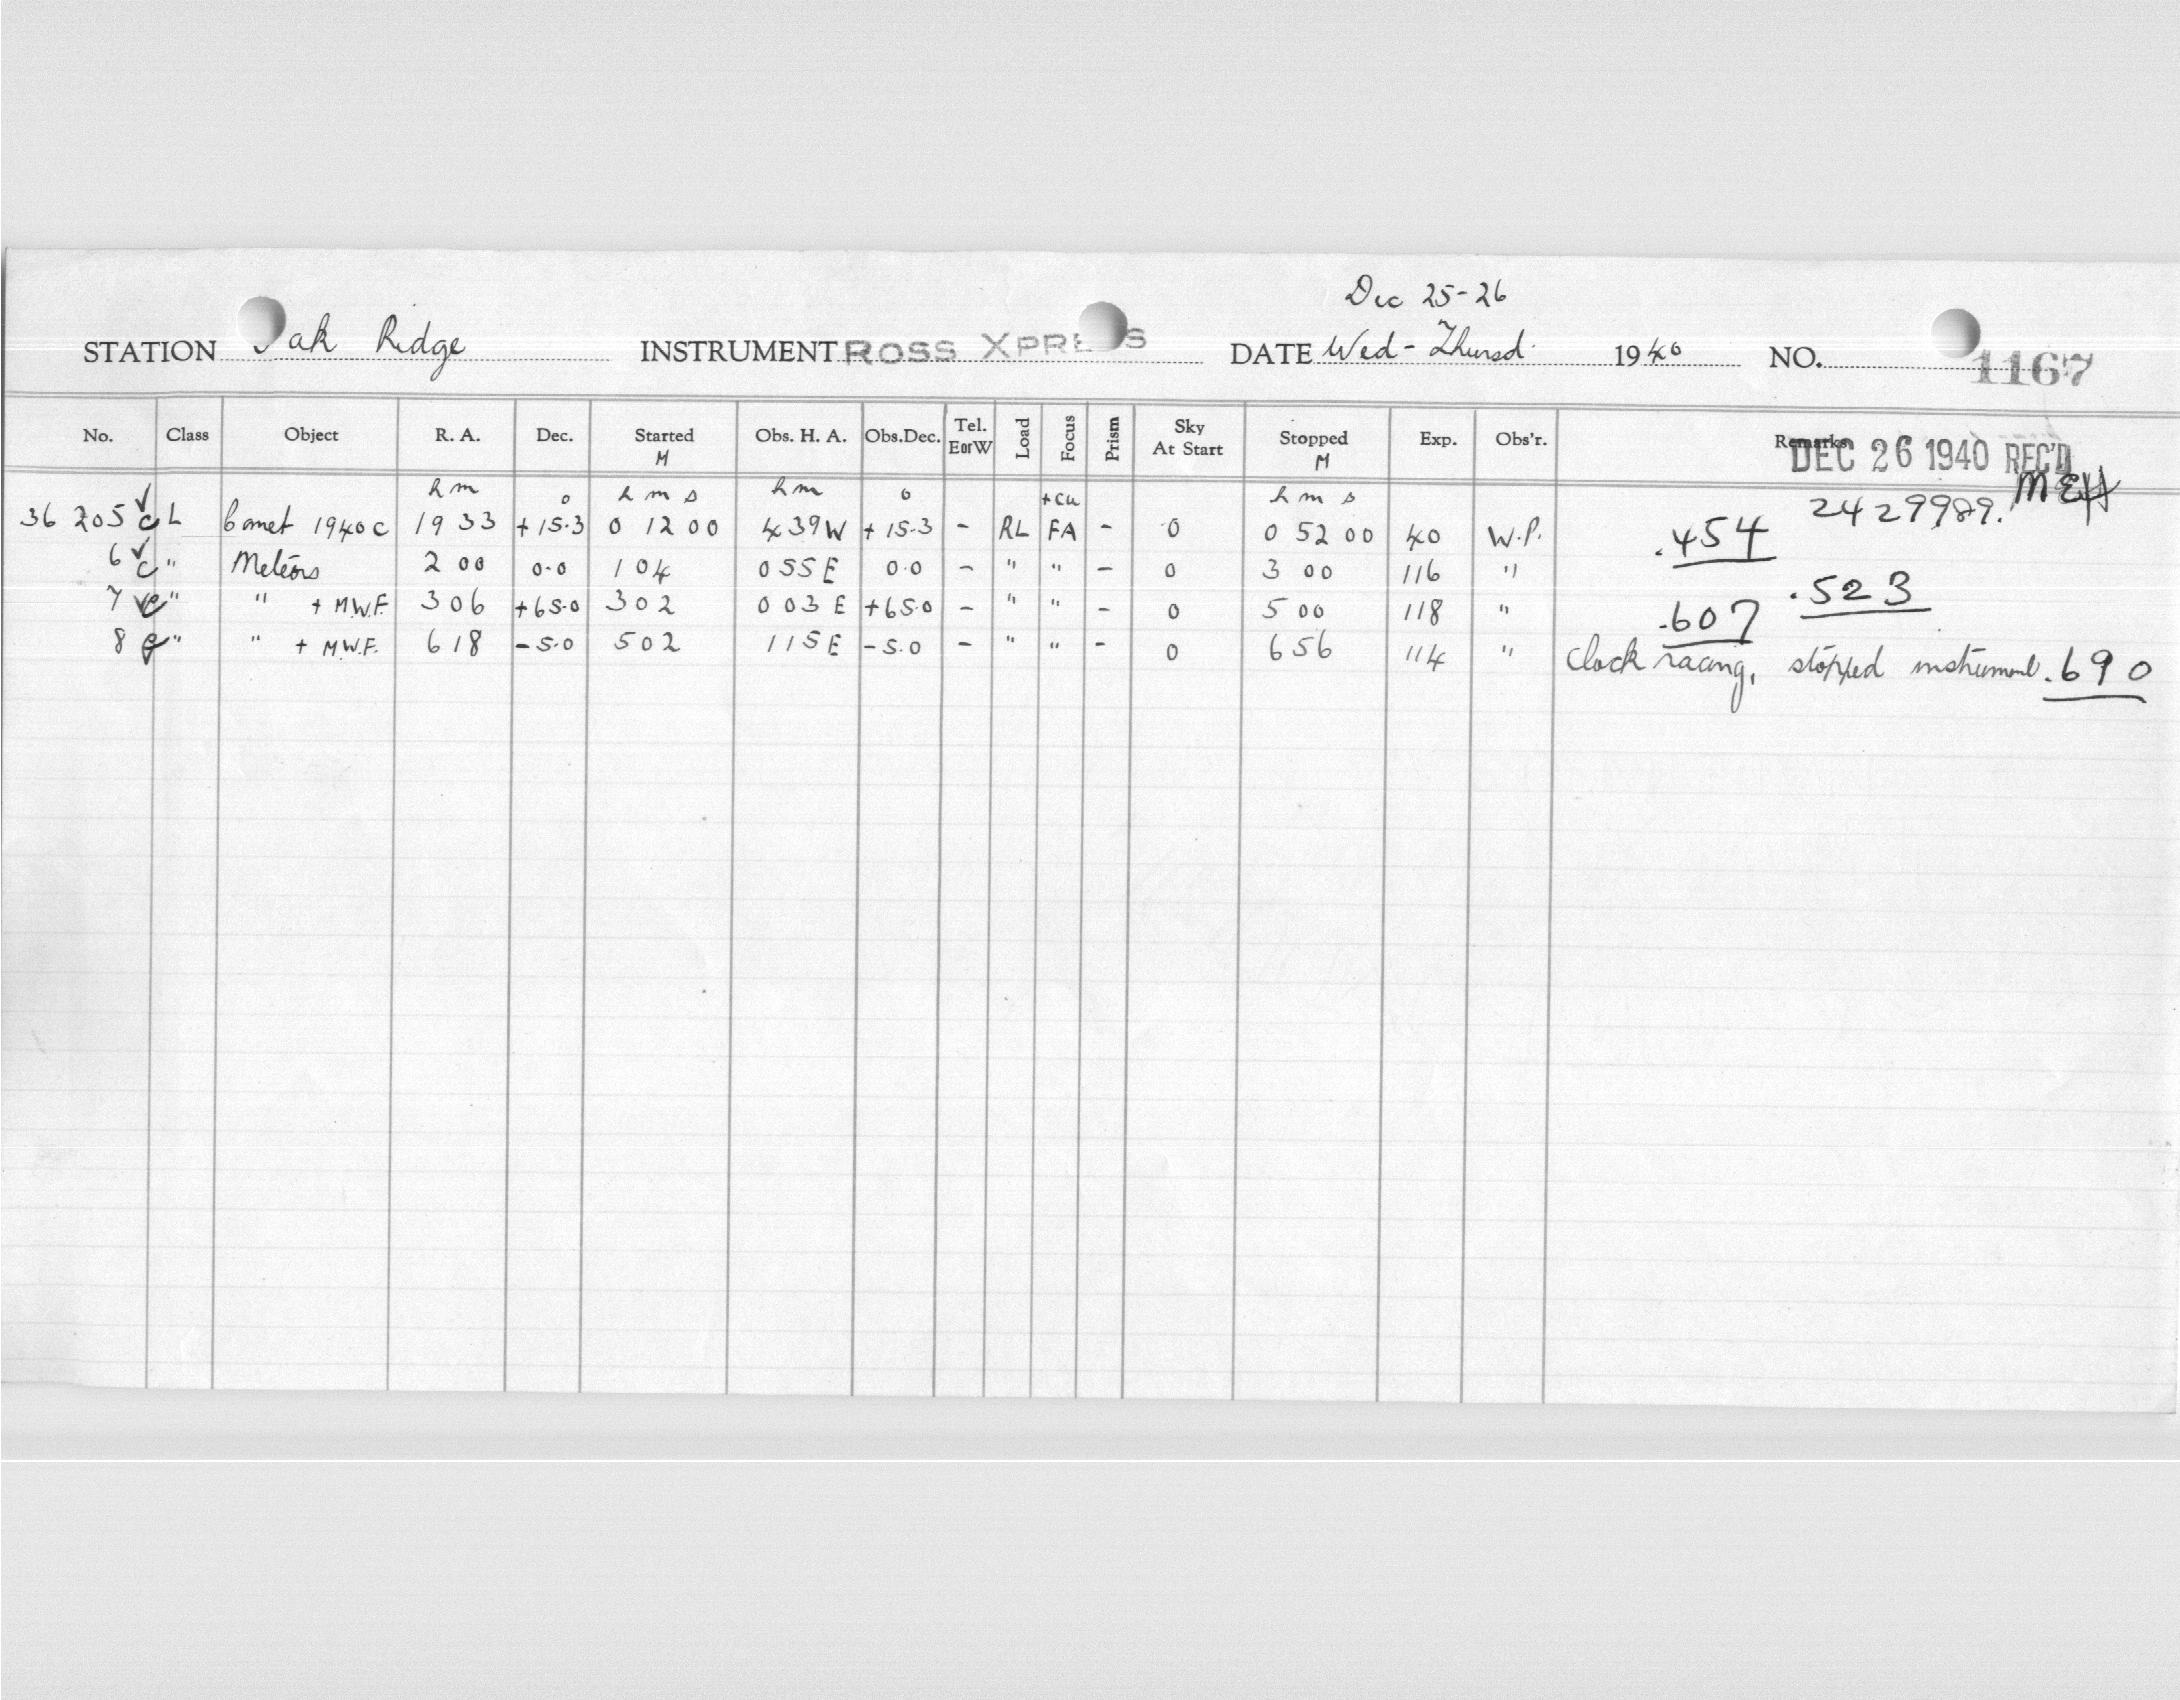 Dec 25-26
STATION Oak Ridge INSTRUMENT ROSS XPRESS DATE Wed - Thursd. 1940 NO. 1167
No. Class Object R. A. Dec. Started Obs. H. A. Obs. Dec. Tel. E or W Load Focus Prism Sky At Start Stopped Exp. Obs'r. Remarks
M M DEC 26 1940 REC'D
h m o h m s h m o +cu h m s MEH
2429989.
36 205 ✓ c L Comet 1940c 19 33 +15.3 0 12 00 4 39 W +15.3 - RL FA - 0 0 52 00 40 W.P. .454
6 ✓ c " Meteors 2 00 0.0 1 04 0 55 E 0.0 - " " - 0 3 00 116 " .523
7 ✓ c " " + M.W.F. 3 06 +65.0 3 02 0 03 E +65.0 - " " - 0 5 00 118 " .607
8 " " + M.W.F. 6 18 -5.0 5 02 1 15 E -5.0 - " " - 0 6 56 114 " Clock racing, stopped instrument .690